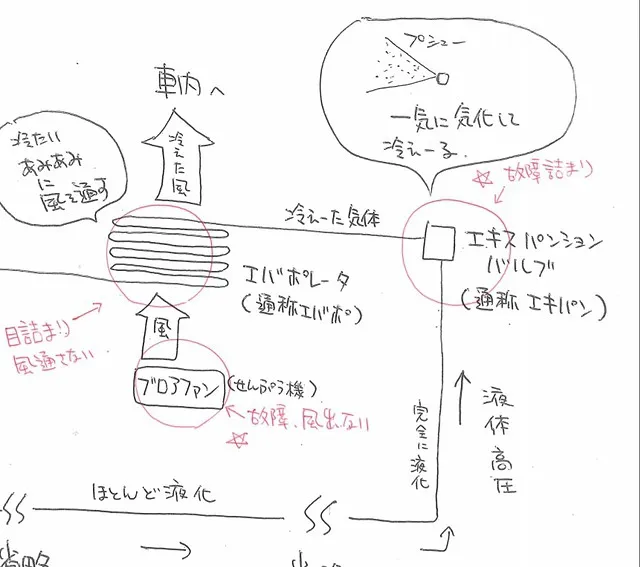 プシュー
一気に気化して
冷えーる
車内へ
冷えた風
冷たい
あみあみ
に
風を通す
☆ 故障詰まり
冷えーた気体
エキスパンション
バルブ
(通称 エキパン)
エバポレータ
(通称エバポ)
目詰まり
風通さない
風
ブロアファン
(せんぷう機)
故障、風出ない
☆
完全に液化
液体高圧
ほとんど液化